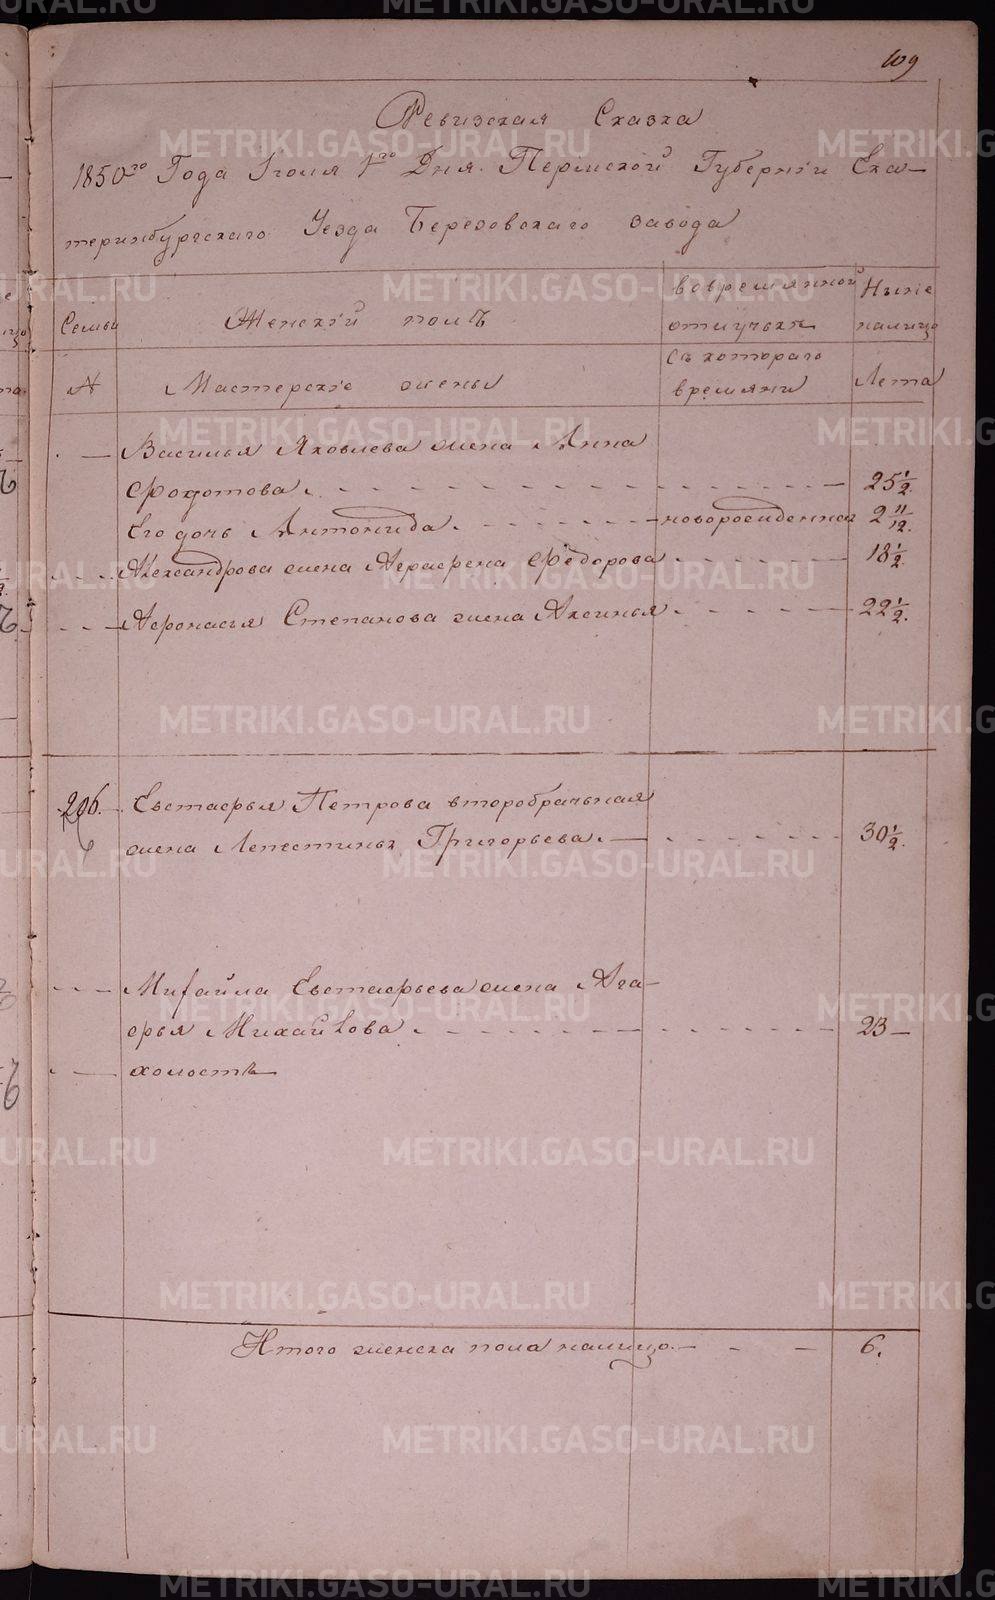 109
Ревизская Сказка
1850го Года Іюля 1го Дня. Пермской Губерніи Ека-
теринбургскаго Уезда Березовскаго завода
Семьи
Женскій полъ
вовремянной
отлучьки
Ныне
налицо
№
Мастерскіе жены
съ котораго
времяни
Лета
Василья Яковлева жена Анна
Федотова. 25 1/2.
Его дочь Антонида. новорожденная 2 11/12.
Александрова жена Аграфена Федорова 18 1/2.
Афонасья Степанова жена Аксинья 22 1/2.
206. Евстафья Петрова второбрачьная
жена Григорьева. 30 1/2.
Михайла Евстафьева жена Ага-
фья Михайлова. 23
холостъ
Итого женска пола налицо. 6.
METRIKI.GASO-URAL.RU